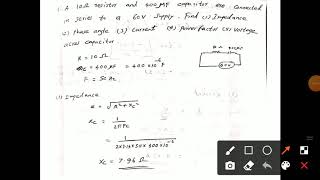 1. A 10Ω resistor and 400μF capacitor are connected
in series to a 60V supply. Find (1) Impedance
(2) Phase angle (3) Current (4) Power factor (5) Voltage
across capacitor
R = 10Ω
C = 400μF = 400×10⁻⁶
F = 50
(1) Impedance
Z = √R²+Xc²
Xc = 1
2πFC
= 1
2×3.14×50×400×10⁻⁶
Xc = 7.96 Ω